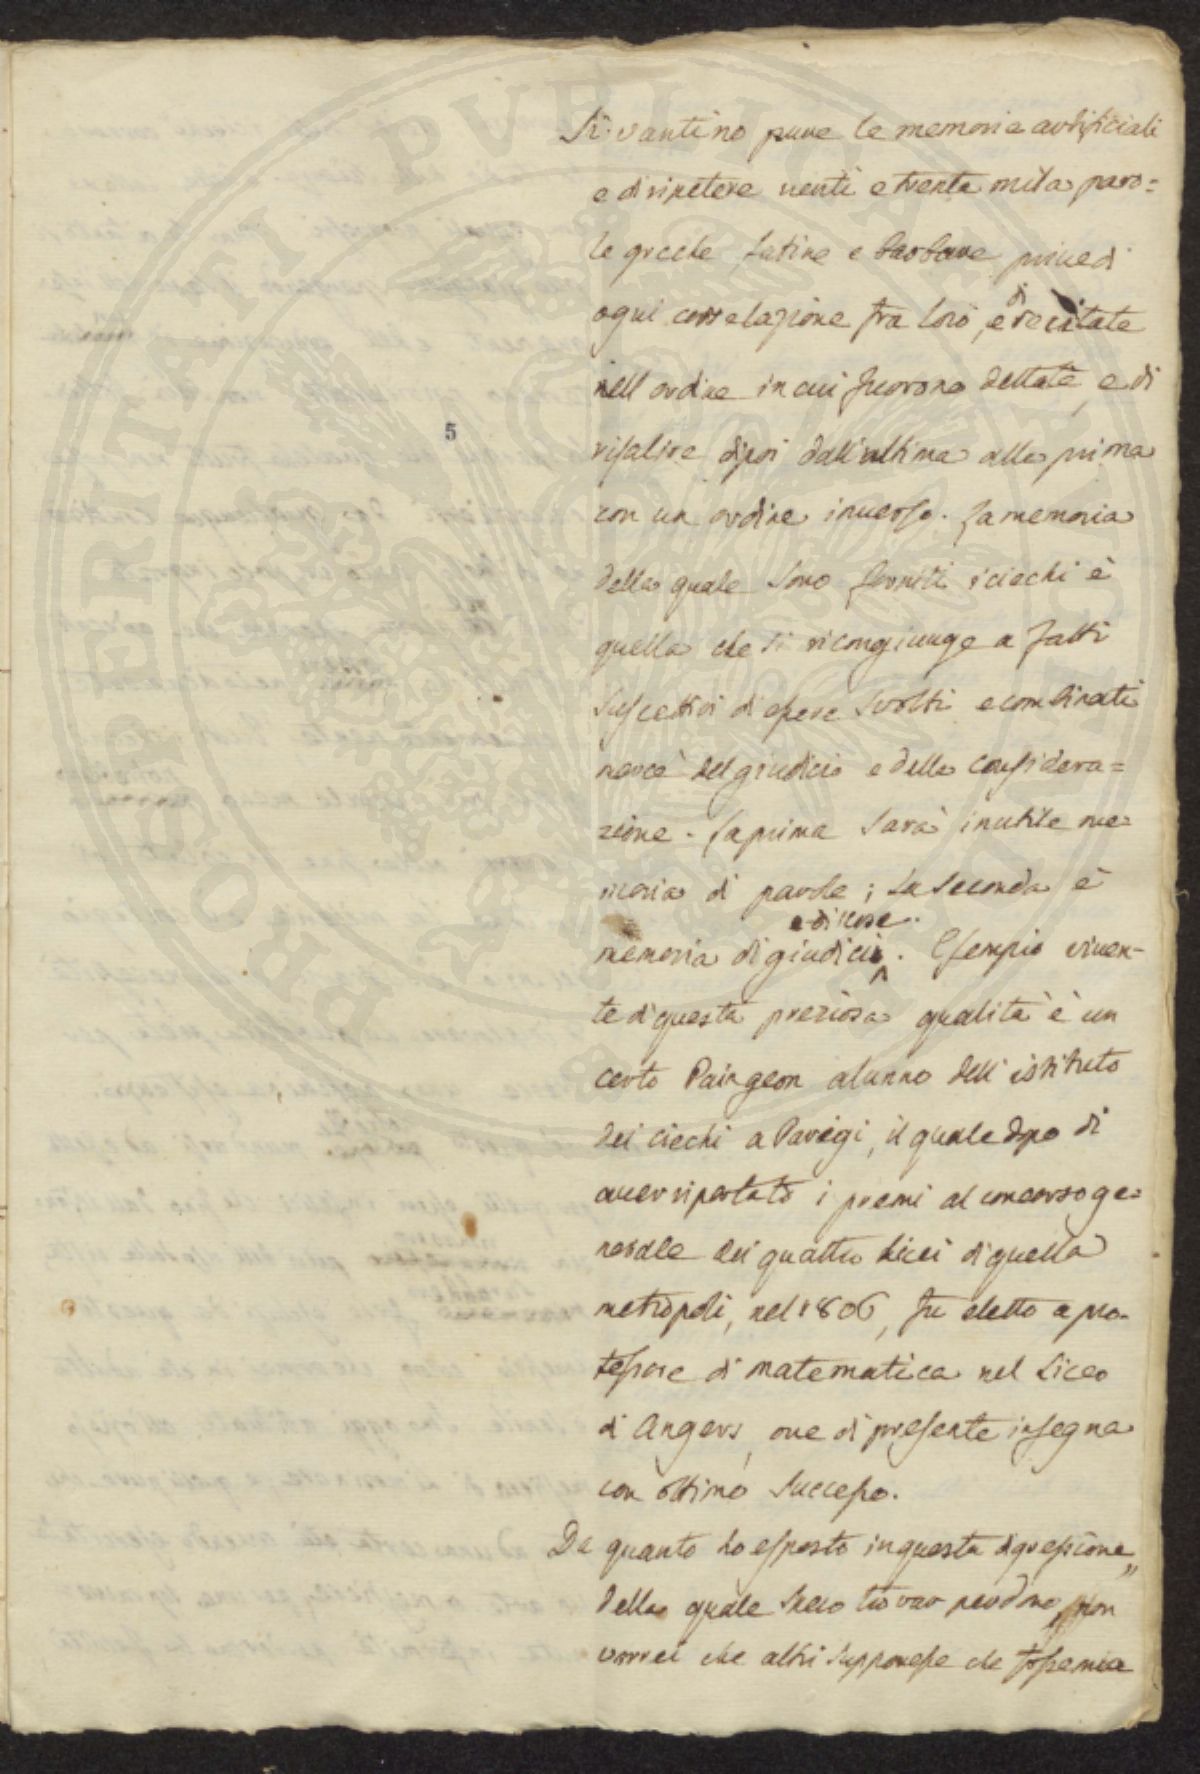 Si vantino pure le memorie artificiali
e di ripetere venti e trenta mila paro=
le greche latine e barbare prive di
ogni correlazione fra loro, e di recitate
nell ordine in cui furono dettate, e di
risalire dipoi dall'ultima alla prima
con un ordine inverso. La memoria
della quale sono forniti i ciechi è
quella che si ricongiunge a fatti
suscettivi di essere svolti e combinati
mercè del giudicio e della considera=
zione. La prima sarà inutile me=
moria di parole; la seconda è
e di cose.
memoria di giudicii. Esempio viven-
te di questa preziosa qualità è un
certo Paingeon alunno dell' istituto
dei ciechi a Parigi, il quale dopo di
aver riportato i premi al concorso ge=
nerale dei quattro Licei di quella
metropoli, nel 1806, fu eletto a pro-
fessore di matematica nel Liceo
di Angers, ove di presente insegna
con ottimo successo.
Da quanto ho esposto in questa digressione,
della quale spero trovar perdono, non
vorrei che altri supponesse che fosse mia
5
PROSPERITATI PVBLICAE